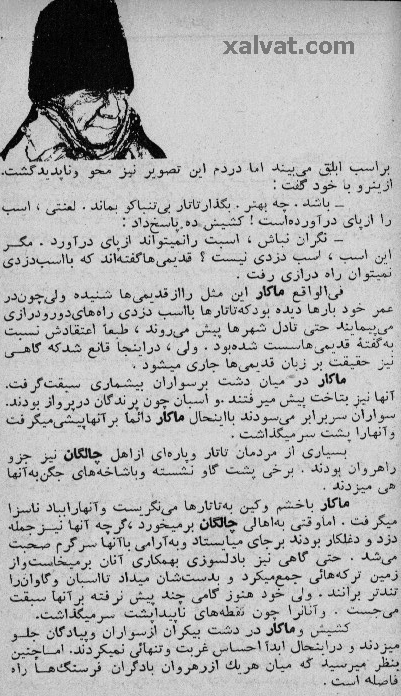 xalvat.com
براسب ابلق می‌بیند اما دردم این تصویر نیز محو وناپدیدگشت.
ازینرو با خود گفت :
ـ باشد . چه بهتر . بگذارتاتار بی‌تنباکو بماند . لعنتی ، اسب
را ازپای درآورده‌است ! کشیش ده پاسخ‌داد :
ـ نگران نباش ، اسبت رانمیتواند ازپای درآورد . مگر
این اسب ، اسب دزدی نیست ؟ قدیمی‌هاگفته‌اند که بااسب‌دزدی
نمیتوان راه درازی رفت .
فی‌الواقع ماکار این مثل راازقدیمی‌ها شنیده ولی‌چون‌در
عمر خود بارها دیده بودکه‌تاتارها بااسب دزدی راه‌های‌دورودرازی
می‌پیمایند حتی تادل شهرها پیش می‌روند ، طبعاً اعتقادش نسبت
به‌گفتهٔ قدیمی‌هاسست شده‌بود . ولی ، دراینجا قانع شدکه گاهی
نیز حقیقت بر زبان قدیمی‌ها جاری میشود .
ماکار در میان دشت برسواران بیشماری سبقت‌گرفت.
آنها نیز بتاخت پیش میرفتند .و اسبان چون پرندگان درپرواز بودند.
سواران سربرابر می‌سودند بااینحال ماکار دائماً برآنهاپیشی‌میگرفت
وآنهارا پشت سر میگذاشت .
بسیاری از مردمان تاتار وپاره‌ای ازاهل چالگان نیز جزو
راهروان بودند . برخی پشت گاو نشسته وباشاخه‌های جگن‌به‌آنها
هی میزدند .
ماکار باخشم وکین به‌تاتارها می‌نگریست وآنهارابباد ناسزا
میگرفت . اماوقتی به‌اهالی چالگان برمیخورد ،گرچه آنها نیز جمله
دزد و دغلکار بودند برجای میایستاد وبه‌آرامی باآنها سرگرم صحبت
می‌شد . حتی گاهی نیز بادلسوزی بهمکاری آنان برمیخاست‌واز
زمین ترکه‌هائی جمع‌میکرد و بدست‌شان میداد تااسبان وگاوان‌را
تندتر برانند . ولی خود هنوز گامی چند پیش نرفته برآنها سبقت
می‌جست . وآنانرا چون نقطه‌های ناپیداپشت سرمیگذاشت.
کشیش وماکار در دشت بیکران ازسواران وپیادگان جلو
میزدند و دراینحال ابداً احساس غربت وتنهائی نمیکردند. اماچنین
بنظر میرسید که میان هریك ازرهروان بادگران فرسنگ‌ها راه
فاصله است .